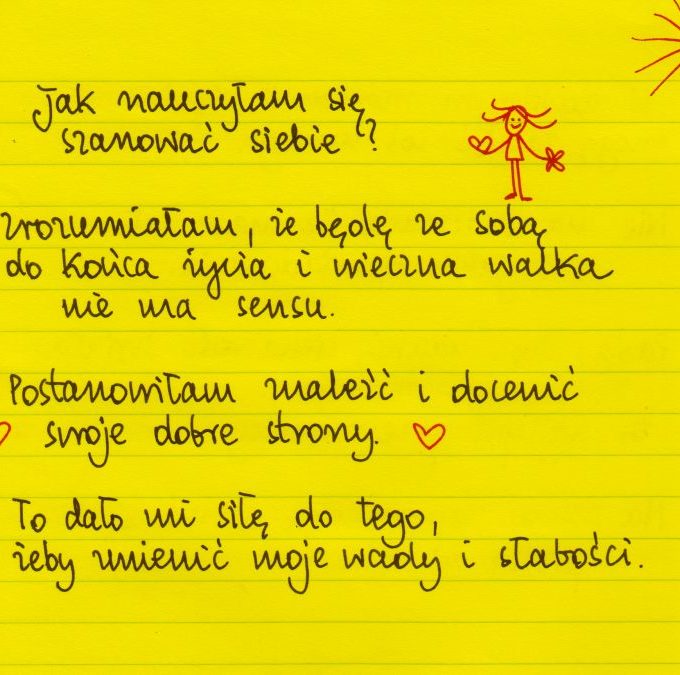 Jak nauczyłam się
szanować siebie?
zrozumiałam, że będę ze sobą
do końca życia i wieczna walka
nie ma sensu.
Postanowiłam znaleźć i docenić
swoje dobre strony.
To dało mi siłę do tego,
żeby zmienić moje wady i słabości.